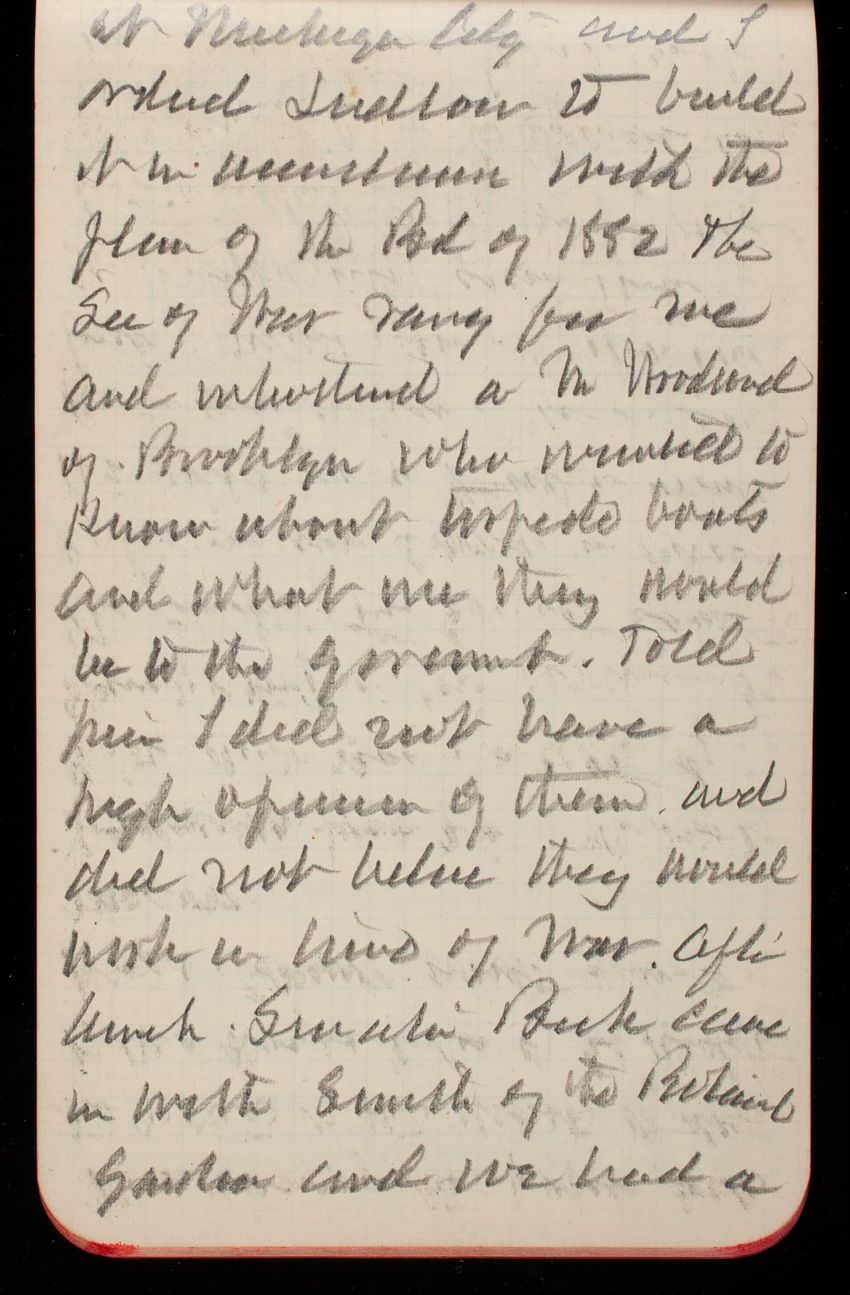 at Michigan City and I
ordered Ludlow to build
it in accordance with the
plan of the Bd of 1882 The
Sec of War rang for me
and introduced a Mr Woodward
of Brooklyn who wanted to
know about torpedo boats
and what use they would
be to the Goverment. Told
him I did not have a
high opinion of them. and
did not believe they would
work in time of War. After
lunch. Senator Beck came
in with Smith of the Botanical
Garden and we had a